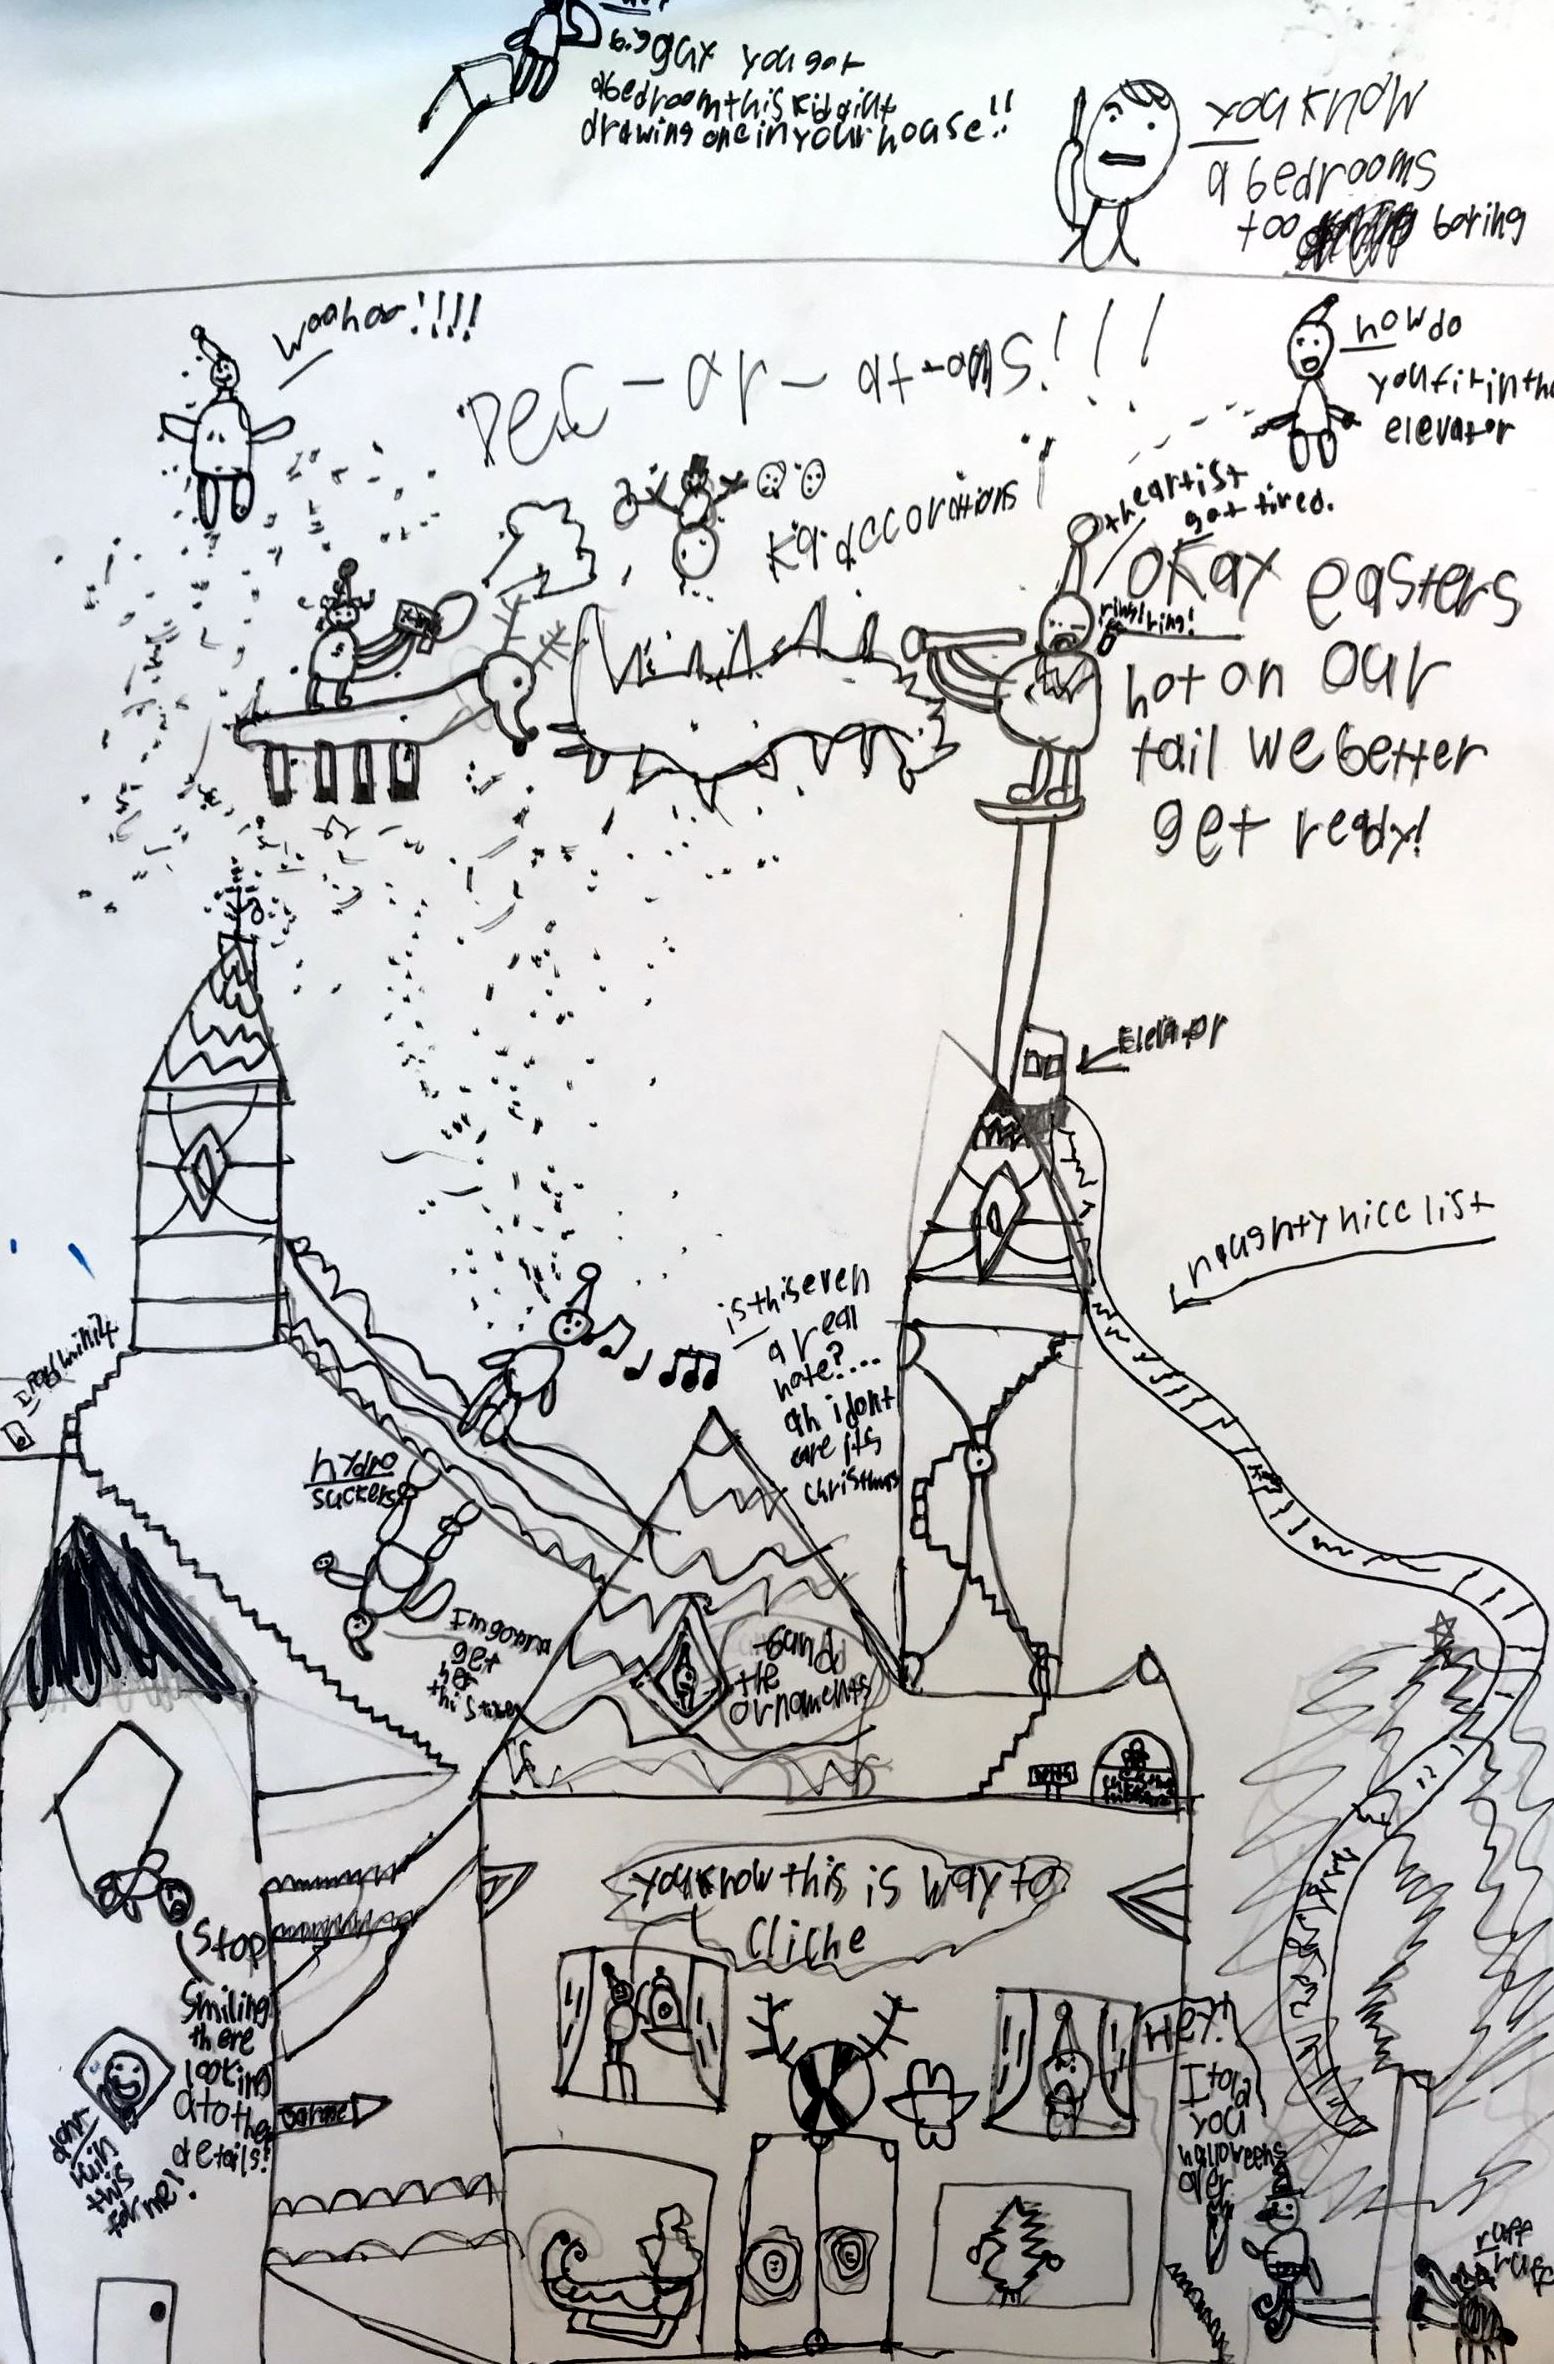 guy you got
a bedroom this kid aint
drawing one in your house!!
you know
a bedrooms
too boring
woohoo!!!!
how do
you fit in the
elevator
Dec-or-at-ons!!!
Kid decorations!
the artist
got tired.
ring! ring!
okay easters
hot on our
tail we better
get ready!
Elevator
naughty nice list
is this even
a real
note?....
ah i dont
care its
christmas
hydro
suckers
I'm gonna
get
her
this time
and
the
ornaments
you know this is way to
Cliche
Stop
Smiling
there
looking
at the
details!
dont
ruin
this
for me!
Hey!
I told
you
halloweens
over
ruff
ruff